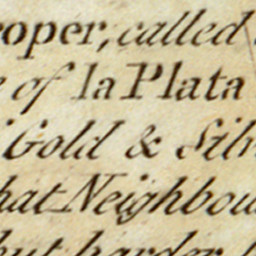 oper, called
of la Plata
Gold & Silv
hat Neighbou
but harder